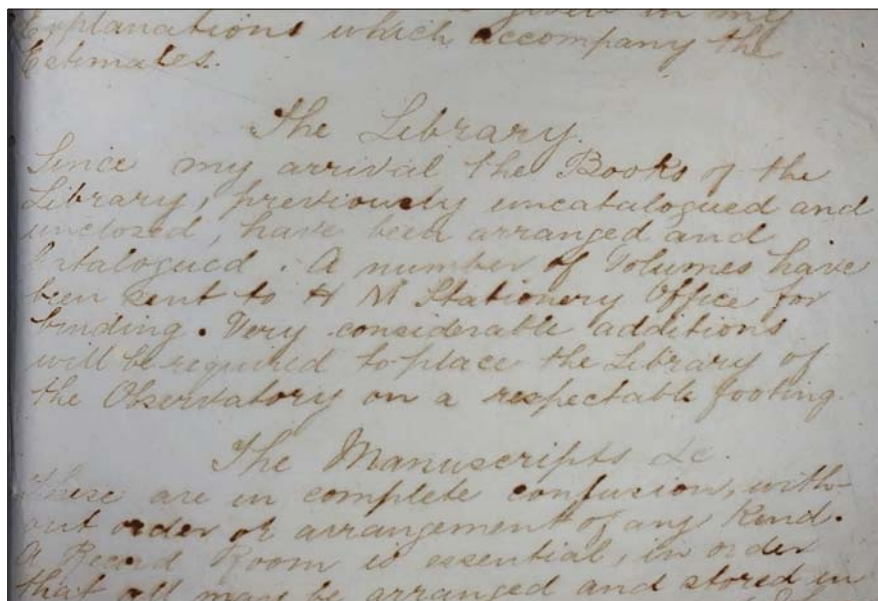 given in my
Explanations which accompany the
Estimates.
The Library.
Since my arrival the Books of the
Library, previously uncatalogued and
unclosed, have been arranged and
Catalogued. A number of Volumes have
been sent to H M Stationery Office for
binding. Very considerable additions
will be required to place the Library of
the Observatory on a respectable footing.
The Manuscripts &c.
These are in complete confusion, with-
out order or arrangement of any Kind.
A Record Room is essential, in order
that all may be arranged and stored in